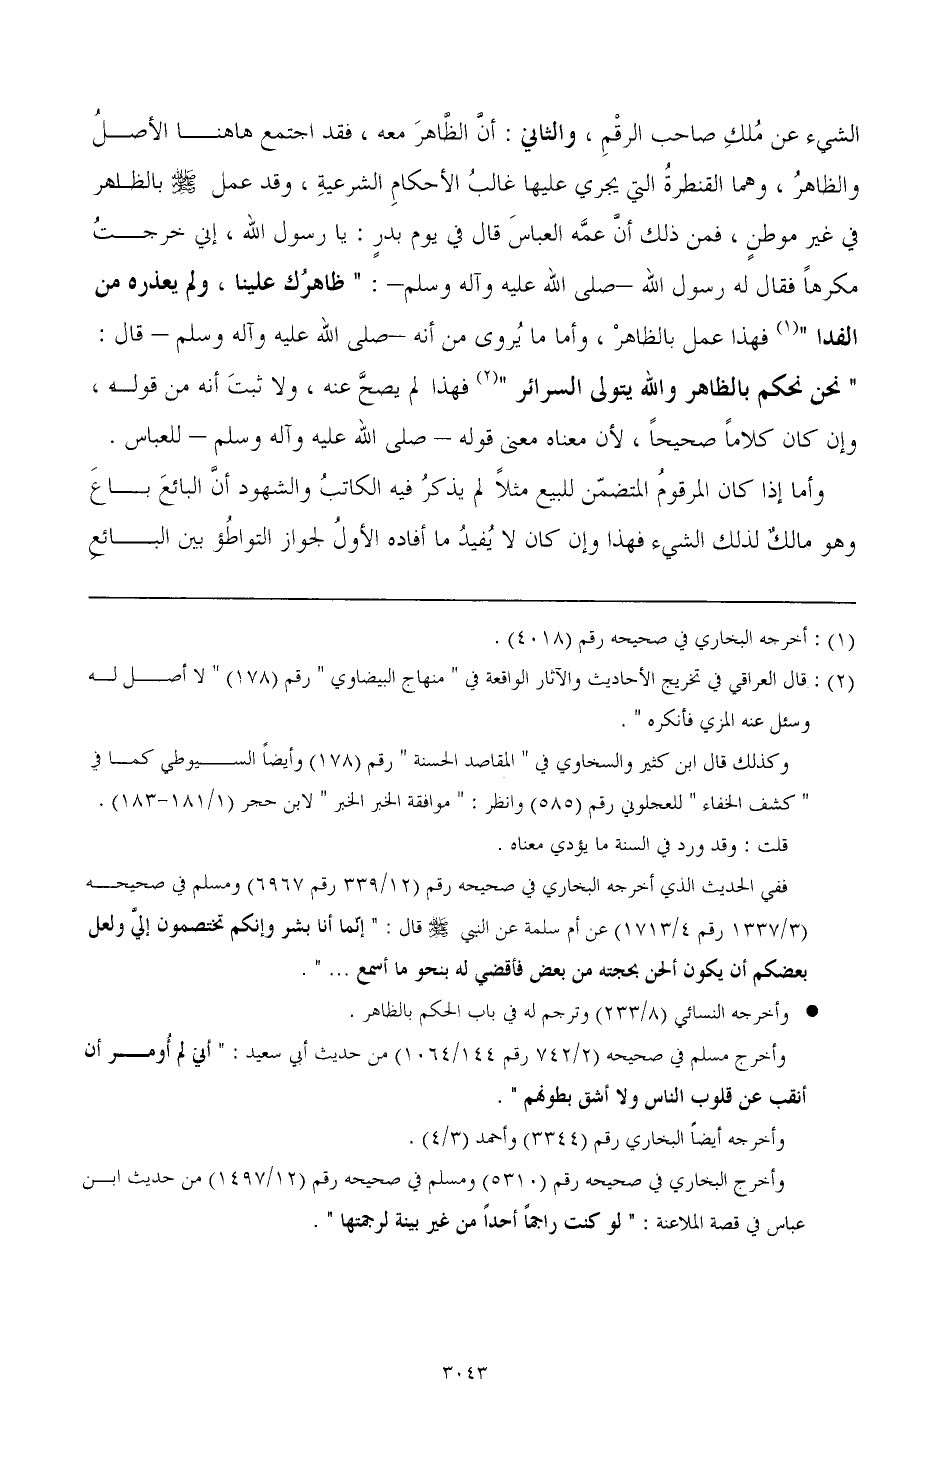 الشيء عن مُلكِ صاحب الرقْمِ ، والثاني : أنَّ الظَّاهرَ معه ، فقد اجتمع هاهنا الأصلُ
والظاهرُ ، وهما القنطرةُ التي يجري عليها غالبُ الأحكامِ الشرعيةِ ، وقد عمل ﷺ بالظاهر
في غير موطنٍ ، فمن ذلك أنَّ عمَّه العباسَ قال في يوم بدرٍ : يا رسول الله ، إني خرجتُ
مكرهاً فقال له رسول الله –صلى الله عليه وآله وسلم– : " ظاهرُك علينا ، ولم يعذره من
الفدا "(١) فهذا عمل بالظاهرْ ، وأما ما يُروى من أنه –صلى الله عليه وآله وسلم – قال :
" نحن نحكم بالظاهر والله يتولى السرائر "(٢) فهذا لم يصحَّ عنه ، ولا ثبتَ أنه من قوله ،
وإن كان كلاماً صحيحاً ، لأن معناه معنى قوله – صلى الله عليه وآله وسلم – للعباس .
وأما إذا كان المرقومُ المتضمّن للبيع مثلاً لم يذكرُ فيه الكاتبُ والشهود أنَّ البائعَ باعَ
وهو مالكٌ لذلك الشيء فهذا وإن كان لا يُفيدُ ما أفاده الأولُ لجواز التواطُؤ بين البائعِ
(١) : أخرجه البخاري في صحيحه رقم (٤٠١٨) .
(٢) : قال العراقي في تخريج الأحاديث والآثار الواقعة في " منهاج البيضاوي " رقم (١٧٨) " لا أصل له
وسئل عنه المزي فأنكره " .
وكذلك قال ابن كثير والسخاوي في " المقاصد الحسنة " رقم (١٧٨) وأيضاً السيوطي كما في
" كشف الخفاء " للعجلوني رقم (٥٨٥) وانظر : " موافقة الخبر الخبر " لابن حجر (١/١٨١-١٨٣) .
قلت : وقد ورد في السنة ما يؤدي معناه .
ففي الحديث الذي أخرجه البخاري في صحيحه رقم (١٢/٣٣٩ رقم ٦٩٦٧) ومسلم في صحيحه
(٣/١٣٣٧ رقم ٤/١٧١٣) عن أم سلمة عن النبي ﷺ قال : " إنّما أنا بشر وإنكم تختصمون إليَّ ولعل
بعضكم أن يكون ألحن بحجته من بعض فأقضي له بنحو ما أسمع ... " .
● وأخرجه النسائي (٨/٢٣٣) وترجم له في باب الحكم بالظاهر .
وأخرج مسلم في صحيحه (٢/٧٤٢ رقم ١٤٤/١٠٦٤) من حديث أبي سعيد : " أني لم أُومر أن
أنقب عن قلوب الناس ولا أشق بطونهم " .
وأخرجه أيضاً البخاري رقم (٣٣٤٤) وأحمد (٣/٤) .
وأخرج البخاري في صحيحه رقم (٥٣١٠) ومسلم في صحيحه رقم (١٢/١٤٩٧) من حديث ابن
عباس في قصة الملاعنة : " لو كنت راجماً أحداً من غير بينة لرجمتها " .
٣٠٤٣